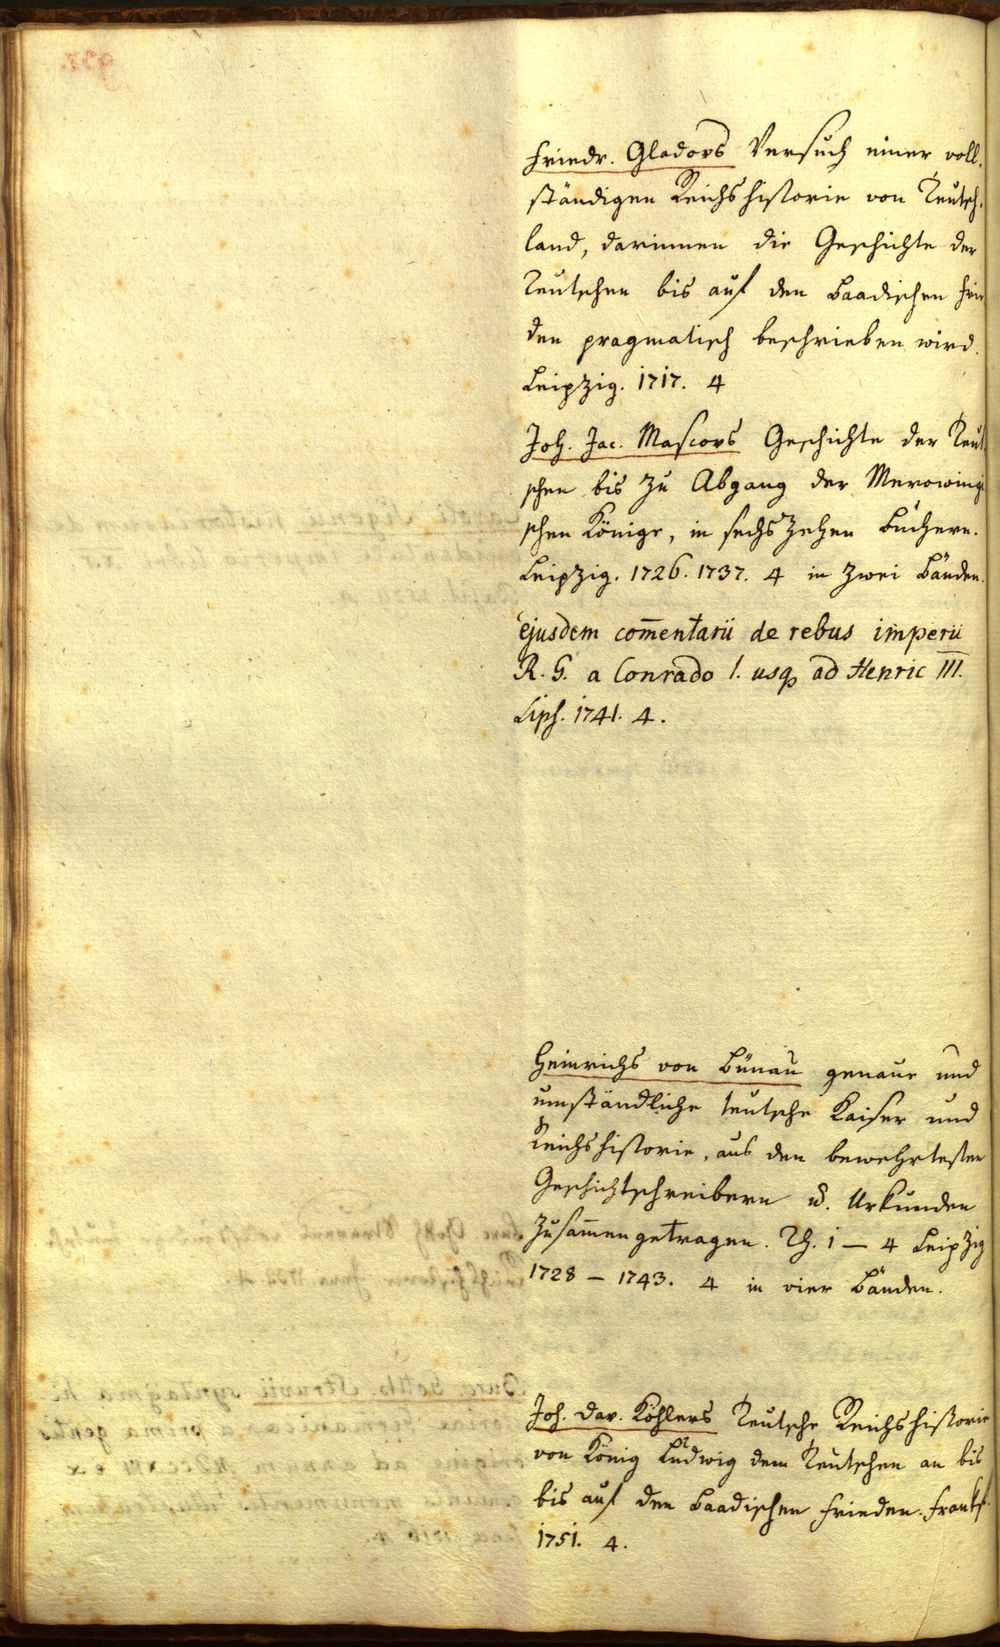 Friedr. Gladovs Versuch einer voll-
ständigen Reichshistorie von Teutsch-
land, darinnen die Geschichte der
Teutschen bis auf den Baadischen Frie
den pragmatisch beschrieben wird.
Leipzig. 1717. 4
Joh. Jac. Mascovs Geschichte der Teut
schen bis zu Abgang der Merowingi
schen Könige, in sechszehen Büchern.
Leipzig. 1726. 1737. 4 in zwei Bänden.
ejusdem com̄entarii de rebus imperii
R. G. a Conrado I. usq ad Henric III.
Lips. 1741. 4.
Heinrichs von Bünau genaue und
umständliche teutsche Kaiser und
Reichshistorie, aus den bewehrtesten
Geschichtschreibern u. Urkunden
zusam̄engetragen. Th. 1 — 4 Leipzig
1728 – 1743. 4 in vier Bänden.
Joh. Dav. Köhlers Teutsche Reichshistorie
von König Ludwig dem Teutschen an bis
bis auf den Baadischen Frieden. Frankf.
1751. 4.